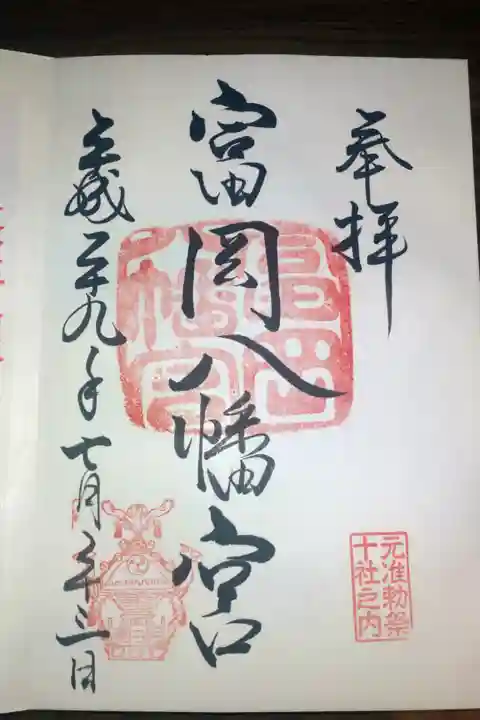 奉拝
富岡八幡宮
平成二十九年七月二十三日
富岡八幡宮
元准勅祭
十社之内